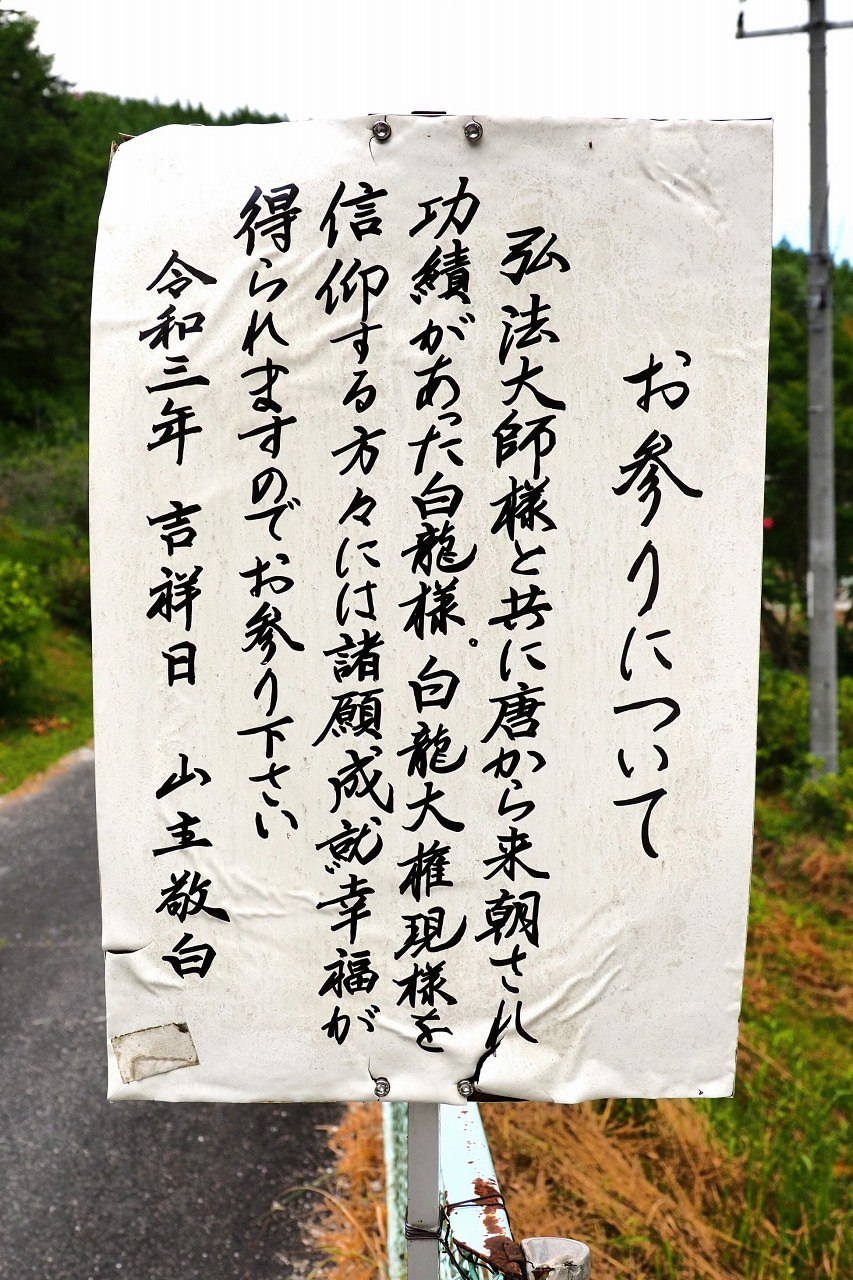 お参りについて
弘法大師様と共に唐から来朝され
功績があった白龍様。白龍大権現様を
信仰する方々には諸願成就幸福が
得られますのでお参り下さい
令和三年 吉祥日 山主敬白